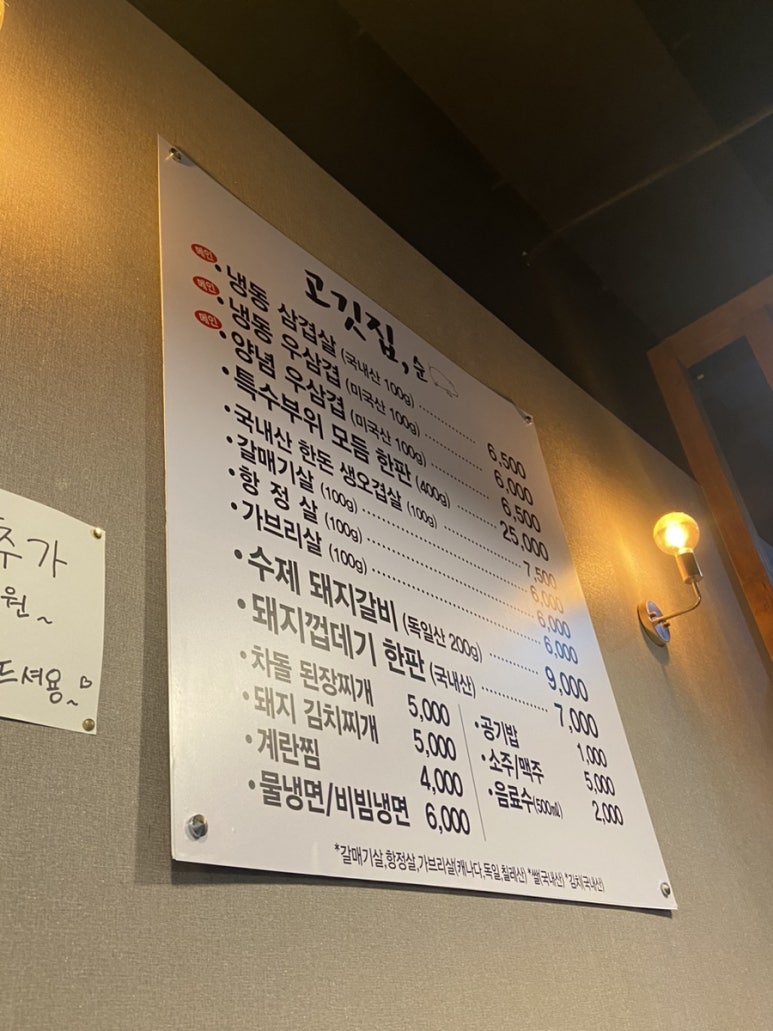 고깃집, 순
메인 • 냉동 삼겹살 (국내산 100g) 6,500
메인 • 냉동 우삼겹 (미국산 100g) 6,000
메인 • 양념 우삼겹 (미국산 100g) 6,500
• 특수부위 모듬 한판 (400g) 25,000
• 국내산 한돈 생오겹살 (100g) 7,500
• 갈매기살 (100g) 6,000
• 항 정 살 (100g) 6,000
• 가브리살 (100g) 6,000
• 수제 돼지갈비 (독일산 200g) 9,000
• 돼지껍데기 한판 (국내산) 7,000
• 차돌 된장찌개 5,000
• 돼지 김치찌개 5,000
• 계란찜 4,000
• 물냉면/비빔냉면 6,000
• 공기밥 1,000
• 소주/맥주 5,000
• 음료수(500㎖) 2,000
*갈매기살,항정살,가브리살(캐나다,독일,칠레산) *쌀(국내산) *김치(국내산)
추가
원~
드셔용~♡